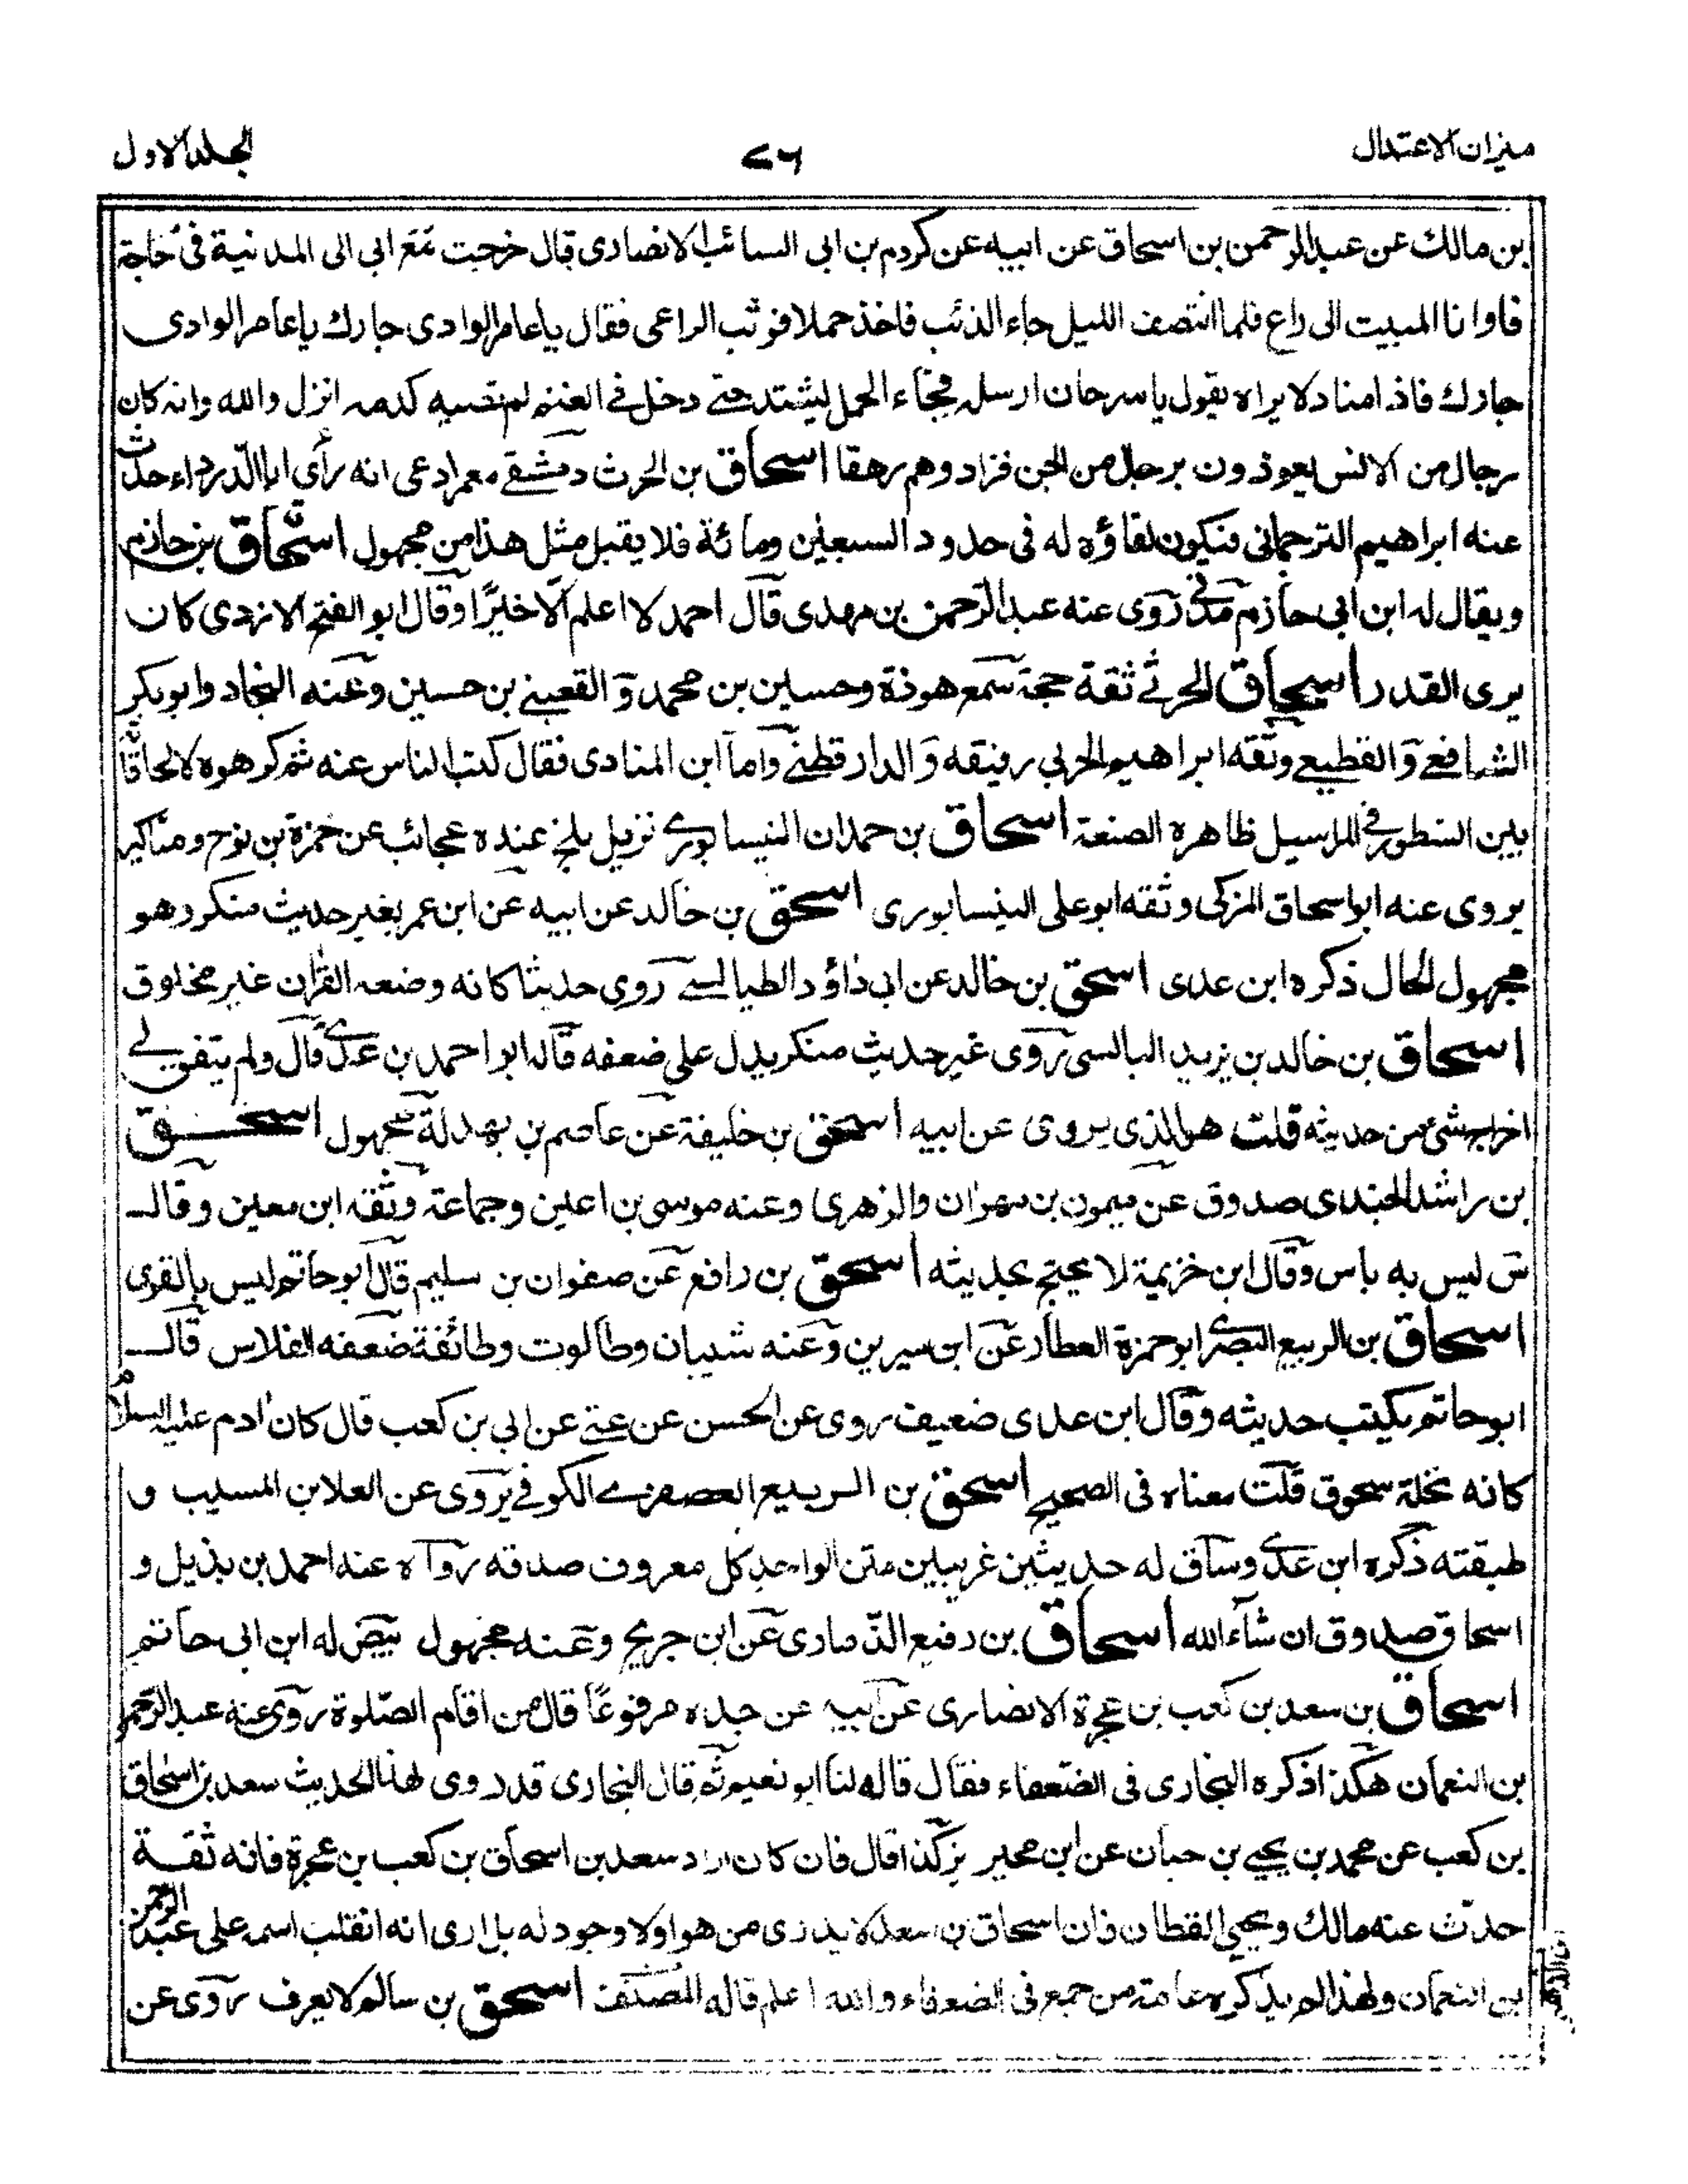 ميزان الاعتدال
٧٦
الجلد الاول
بن مالك عن عبد الرحمن بن اسحاق عن ابيه عن كردم بن ابى السائب الانصارى قال خرجت مع ابى الى المدنية فى حاجة
فاوانا المبيت الى راع فلما انتصف الليل جاء الذئب فاخذ حملا فوثب الراعى فقال ياعامر الوادى جارك ياعامر الوادى
جارك فاذا مناد لا يراه يقول ياسرحان ارسله فجاء الحمل يشتد حتى دخل فى الغنم لم تصبه كدمه انزل والله وانه كان
رجال من الانس يعوذون برجال من الجن فزادوهم رهقا اسحاق بن الحرث دمشقے معمر ادعى انه رأى ابا الدرداء حدث
عنه ابراهيم الترجمانى فيكون لقاؤه له فى حدود السبعين ومائة فلا يقبل مثل هذا من مجهول اسحاق بن حازم
ويقال له ابن ابى حازم مدنى روى عنه عبد الرحمن بن مهدى قال احمد لا اعلم الا خيرًا وقال ابو الفتح الازدى كان
يرى القدر اسحاق الحربے ثقة حجة سمع هوذة وحسين بن محمد و القعبنے بن حسين وعنه النجاد وابو بكر
الشافعے و القطيعے وثقه ابراهيم الحربي رفيقه و الدارقطنے واما ابن المنادى فقال كتب الناس عنه ثم كرهوه لالحاقًا
بين السطور فى المراسيل ظاهرة الصنعة اسحاق بن حمدان النيسابورے نزيل بلخ عنده عجائب عن حمزة بن نوح ومناكير
يروى عنه ابو اسحاق المزكى وثقه ابو على النيسابورى اسحق بن خالد عن ابيه عن ابن عمر بغير حديث منكر وهو
مجهول الحال ذكره ابن عدى اسحق بن خالد عن ابى داؤد الطيالسے روى حديثا كانه وضعه القران غير مخلوق
اسحاق بن خالد بن يزيد البالسى روى غير حديث منكر يدل على ضعفه قاله ابو احمد بن عدے قال ولم يتفق لے
اخراج شئ من حديثه قلت هو الذى يروى عن ابيه اسحق بن خليفة عن عاصم بن بهدلة مجهول اسحق
بن راشد الجندى صدوق عن ميمون بن مهران والزهرى وعنه موسى بن اعين وجماعة وثقه ابن معين وقال
س ليس به باس وقال ابن خزيمة لا يحتج بحديثه اسحق بن رافع عن صفوان بن سليم قال ابو حاتم ليس بالقوى
اسحاق بن الربيع البصرے ابو حمزة العطار عن ابن سيرين وعنه شيبان وطالوت وطائفة ضعفه الفلاس قال
ابو حاتم يكتب حديثه وقال ابن عدى ضعيف روى عن الحسن عن عتے عن ابي بن كعب قال كان ادم عليه السلام
كانه نخلة سحوق قلت معناه فى الصحيح اسحق بن الربيع العصفرے الكوفے يروى عن العلا بن المسيب و
طبقته ذكره ابن عدے وساق له حديثين غريبين متن الواحد كل معروف صدقه رواه عنه احمد بن بذيل و
اسحاق صدوق ان شاء الله اسحاق بن رفيع الذمارى عن ابن جريج وعنه مجهول بيض له ابن ابى حاتم
اسحاق بن سعد بن كعب بن عجرة الانصارى عن ابيه عن جده مرفوعًا قال من اقام الصلوة روى عنه عبد الرحمن
بن النعمان هكذا ذكره البخارى فى الضعفاء فقال قاله لنا ابو نعيم ثم قال البخارى قد روى هذا الحديث سعد بن اسحاق
بن كعب عن محمد بن يحيے بن حبان عن ابن محير يز كذا قال فان كان اراد سعد بن اسحاق بن كعب بن عجرة فانه ثقة
حدث عنه مالك ويحيى القطان فان اسحاق بن سعد لا يدرى من هو اولا وجود له بل ارى انه انقلب اسمه على عبد الرحمن
بن النعمان ولهذا لم يذكره عامة من جمع فى الضعفاء والله اعلم قاله المصنف اسحق بن سالم لا يعرف روى عن